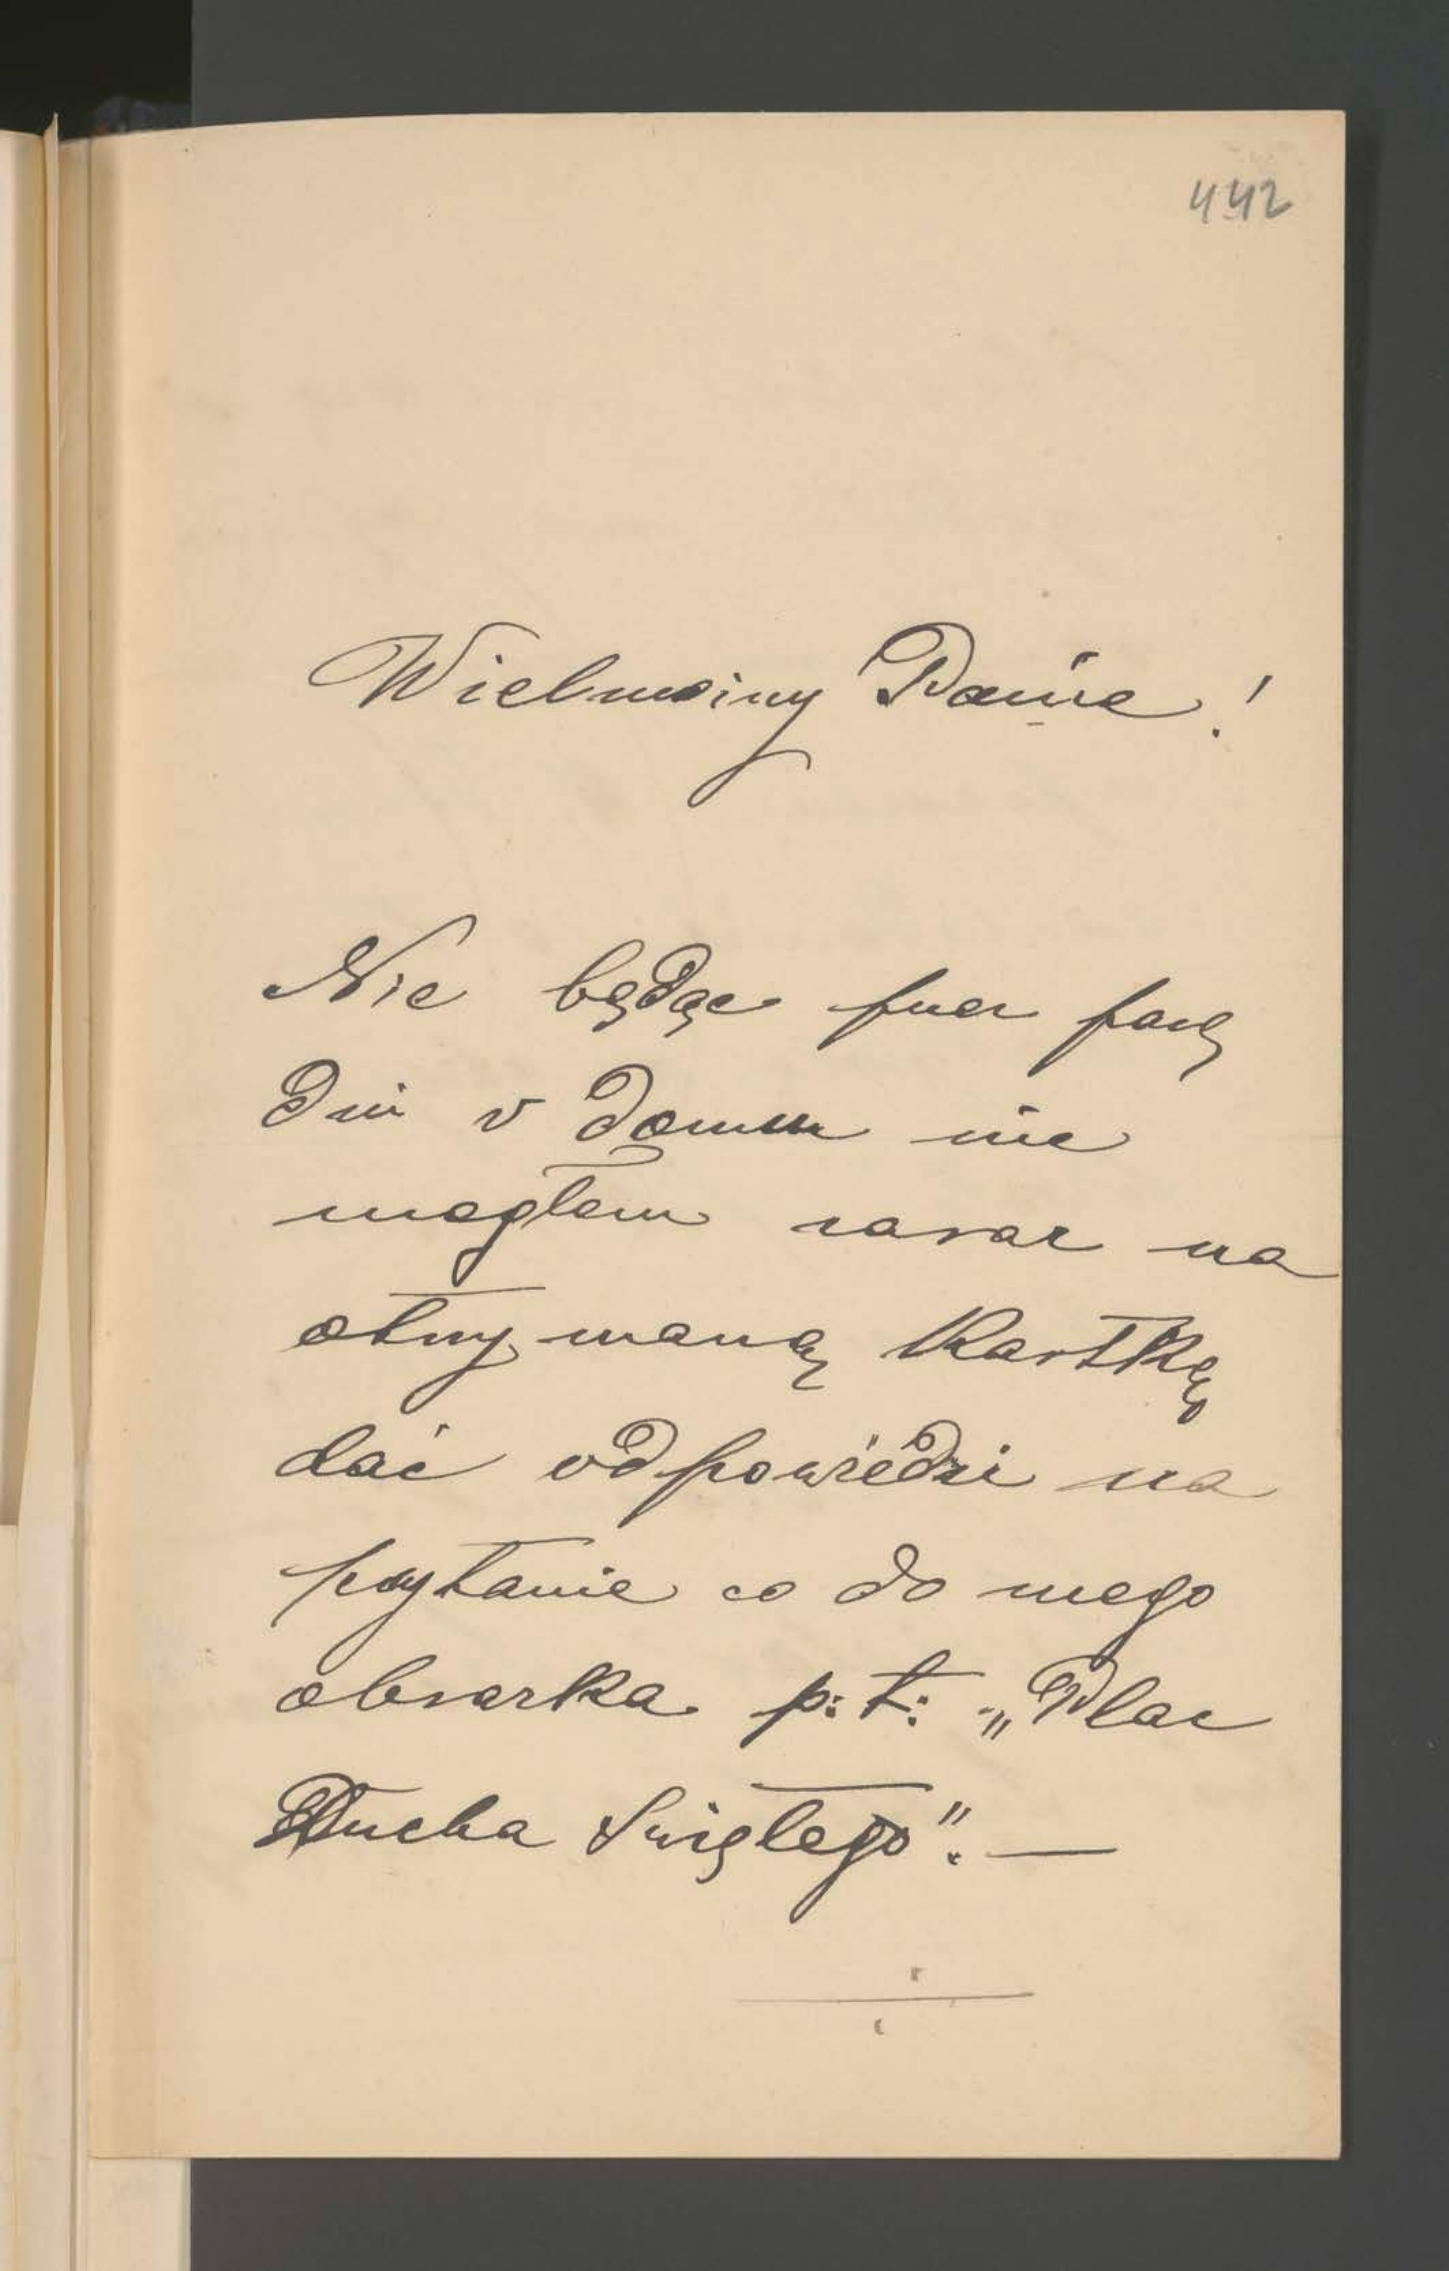 442
Wielmożny Panie!
Nie będąc przez parę
dni w domu nie
mogłem zaraz na
otrzymaną kartkę
dać odpowiedzi na
pytanie co do mego
obrazka p: t: „Plac
Ducha Świętego". —